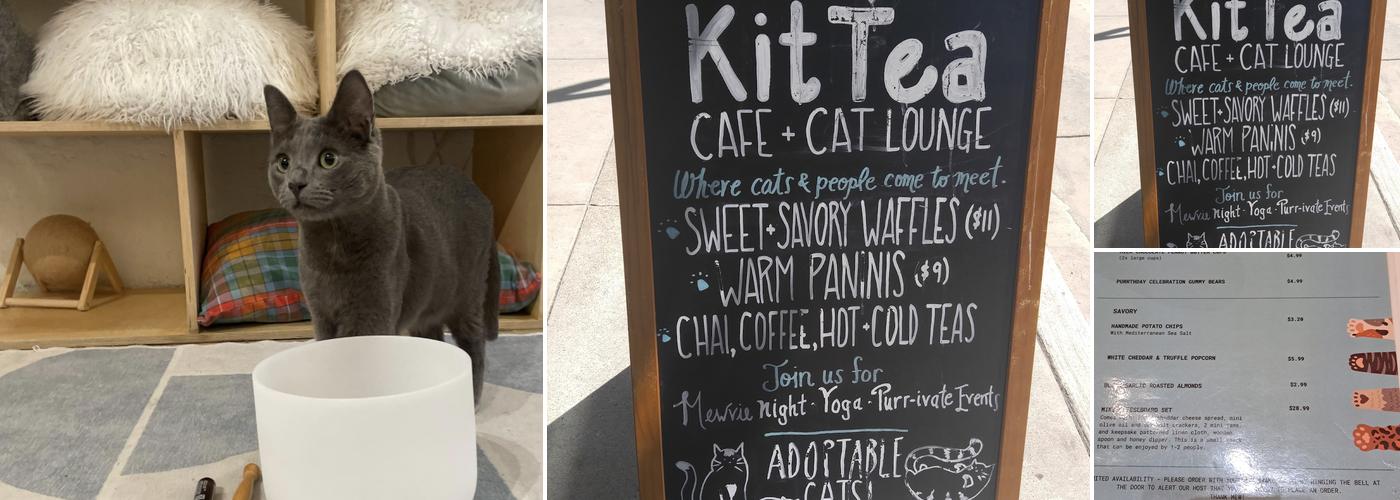 KitTea
CAFE + CAT LOUNGE
Where cats & people come to meet.
SWEET+SAVORY WAFFLES ($11)
WARM PANINIS ($9)
CHAI, COFFEE, HOT+COLD TEAS
Join us for
Mewvie night · Yoga · Purr-ivate Events
ADOPTABLE
CATS!
KitTea
CAFE + CAT LOUNGE
Where cats & people come to meet.
SWEET+SAVORY WAFFLES ($11)
WARM PANINIS ($9)
CHAI, COFFEE, HOT+COLD TEAS
Join us for
Mewvie night · Yoga · Purr-ivate Events
ADOPTABLE
PEANUT BUTTER CUPS $4.99
(2x large cups)
PURRTHDAY CELEBRATION GUMMY BEARS $4.99
SAVORY
HANDMADE POTATO CHIPS $3.20
With Mediterranean Sea Salt
WHITE CHEDDAR & TRUFFLE POPCORN $5.99
GARLIC ROASTED ALMONDS $2.99
SET $28.99
cheddar cheese spread, mini
olive oil and salt crackers, 2 mini jams,
and keepsake patterned linen cloth, wooden
spoon and honey dipper. This is a small snack
that can be enjoyed by 1-2 people.
AVAILABILITY - PLEASE ORDER WITH RINGING THE BELL AT
THE DOOR TO ALERT OUR HOST THAT PLACE AN ORDER.